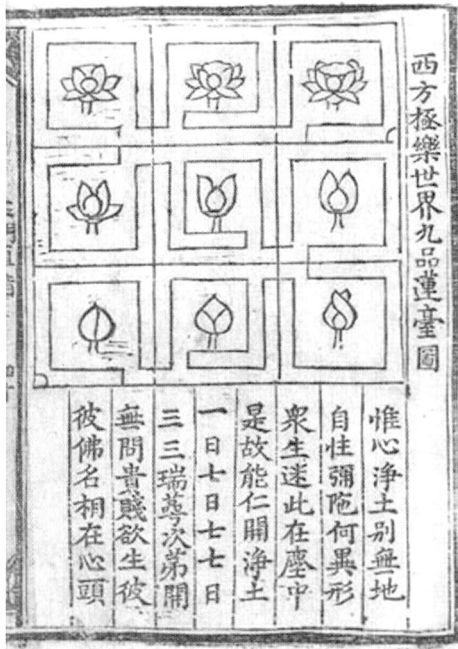 西方極樂世界九品蓮臺圖
惟心淨土別無地
自性彌陁何異形
衆生迷此在塵中
是故能仁開淨土
一日七日七七日
三三瑞萼次苐開
無問貴賤欲生彼
彼佛名相在心頭